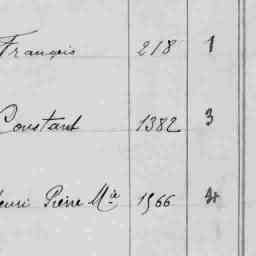 François 218 1
Constant 1382 3
enri Pierre Mie 1566